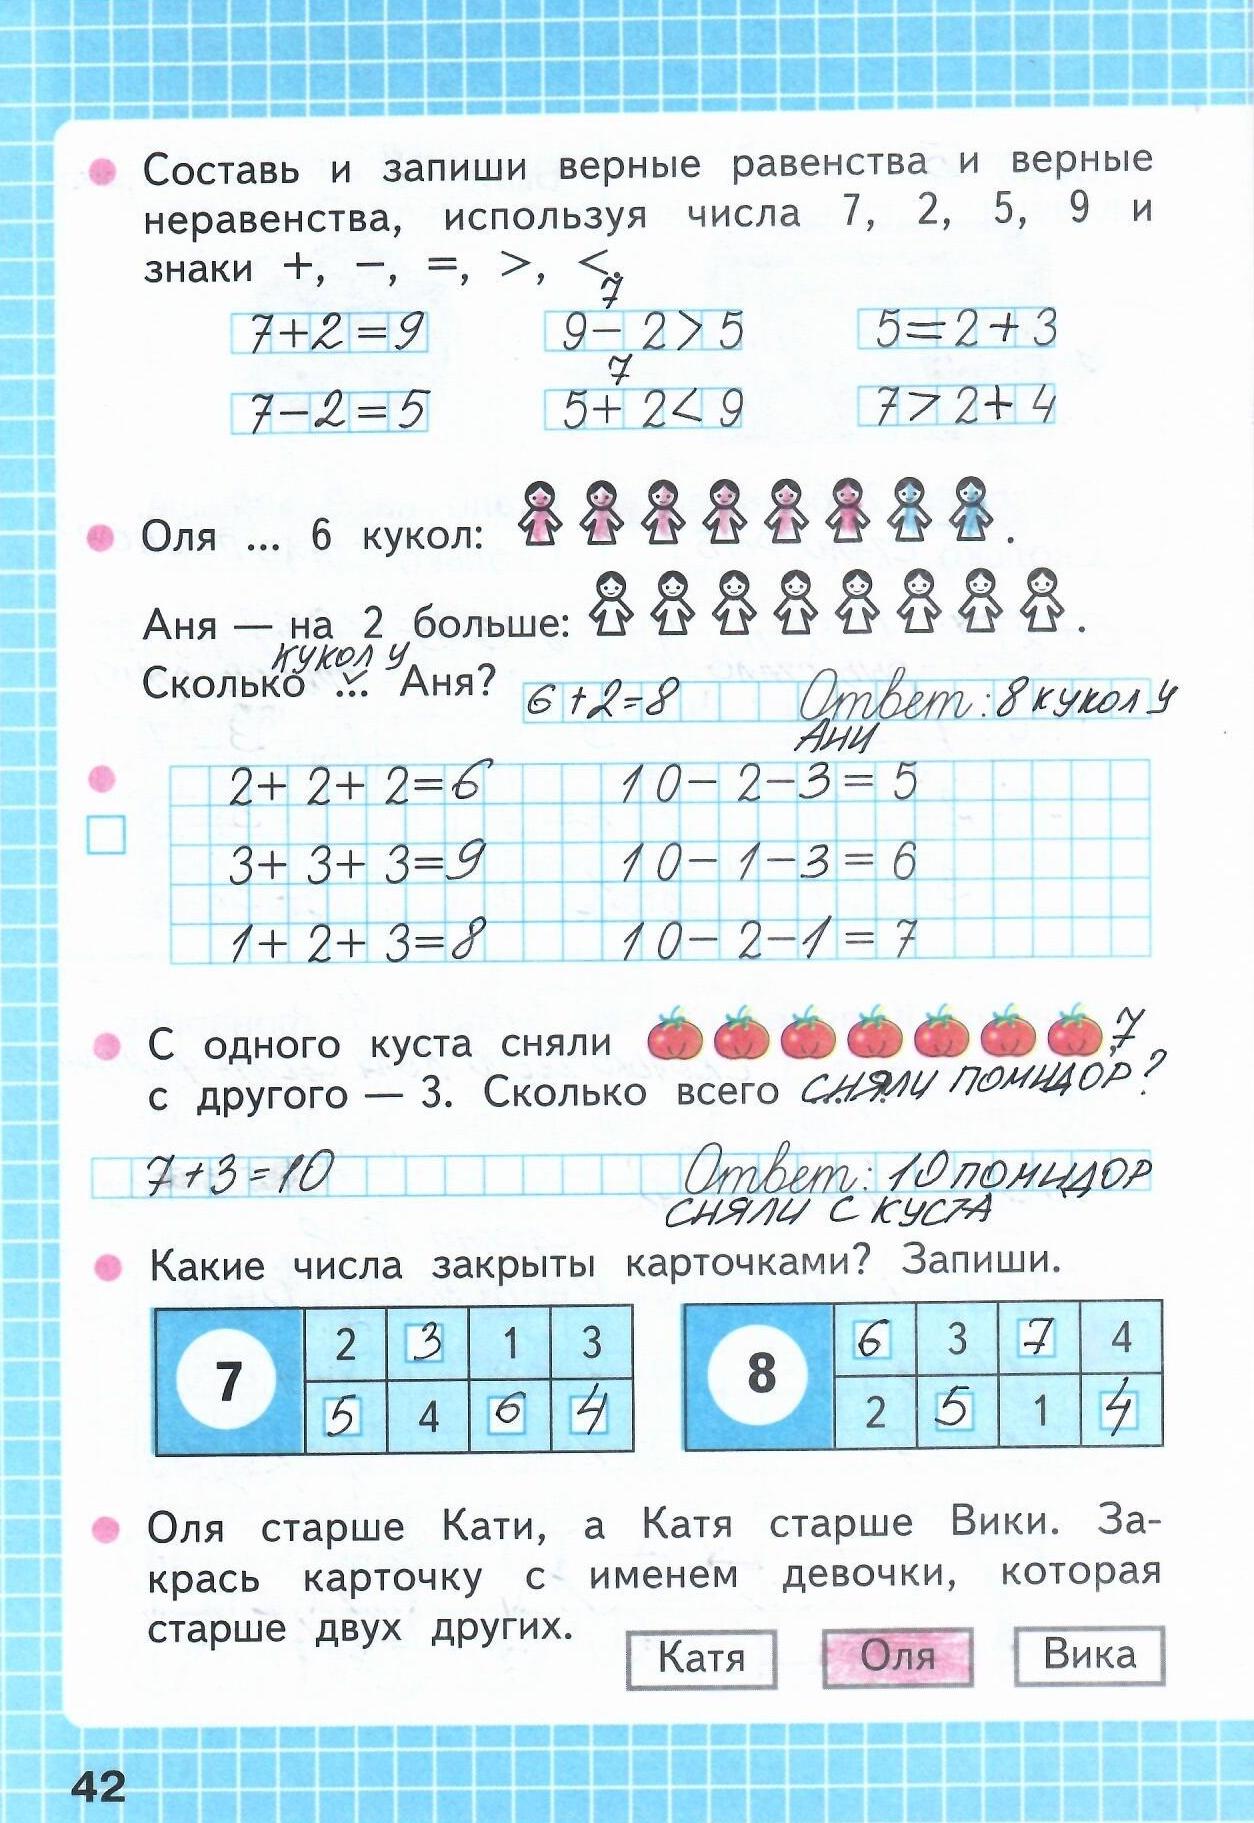 Составь и запиши верные равенства и верные
неравенства, используя числа 7, 2, 5, 9 и
знаки +, −, =, >, <.
7
7+2=9 9−2>5 5=2+3
7
7−2=5 5+2<9 7>2+4
Оля ... 6 кукол: .
Аня — на 2 больше: .
кукол у
Сколько ... Аня?
6+2=8 Ответ: 8 кукол у
Ани
2+2+2=6 10−2−3=5
3+3+3=9 10−1−3=6
1+2+3=8 10−2−1=7
С одного куста сняли , 7
с другого — 3. Сколько всего сняли помидор?
7+3=10 Ответ: 10 помидор
сняли с куста
Какие числа закрыты карточками? Запиши.
2 3 1 3 6 3 7 4
7 8
5 4 6 4 2 5 1 4
Оля старше Кати, а Катя старше Вики. За-
крась карточку с именем девочки, которая
старше двух других.
Катя Оля Вика
42